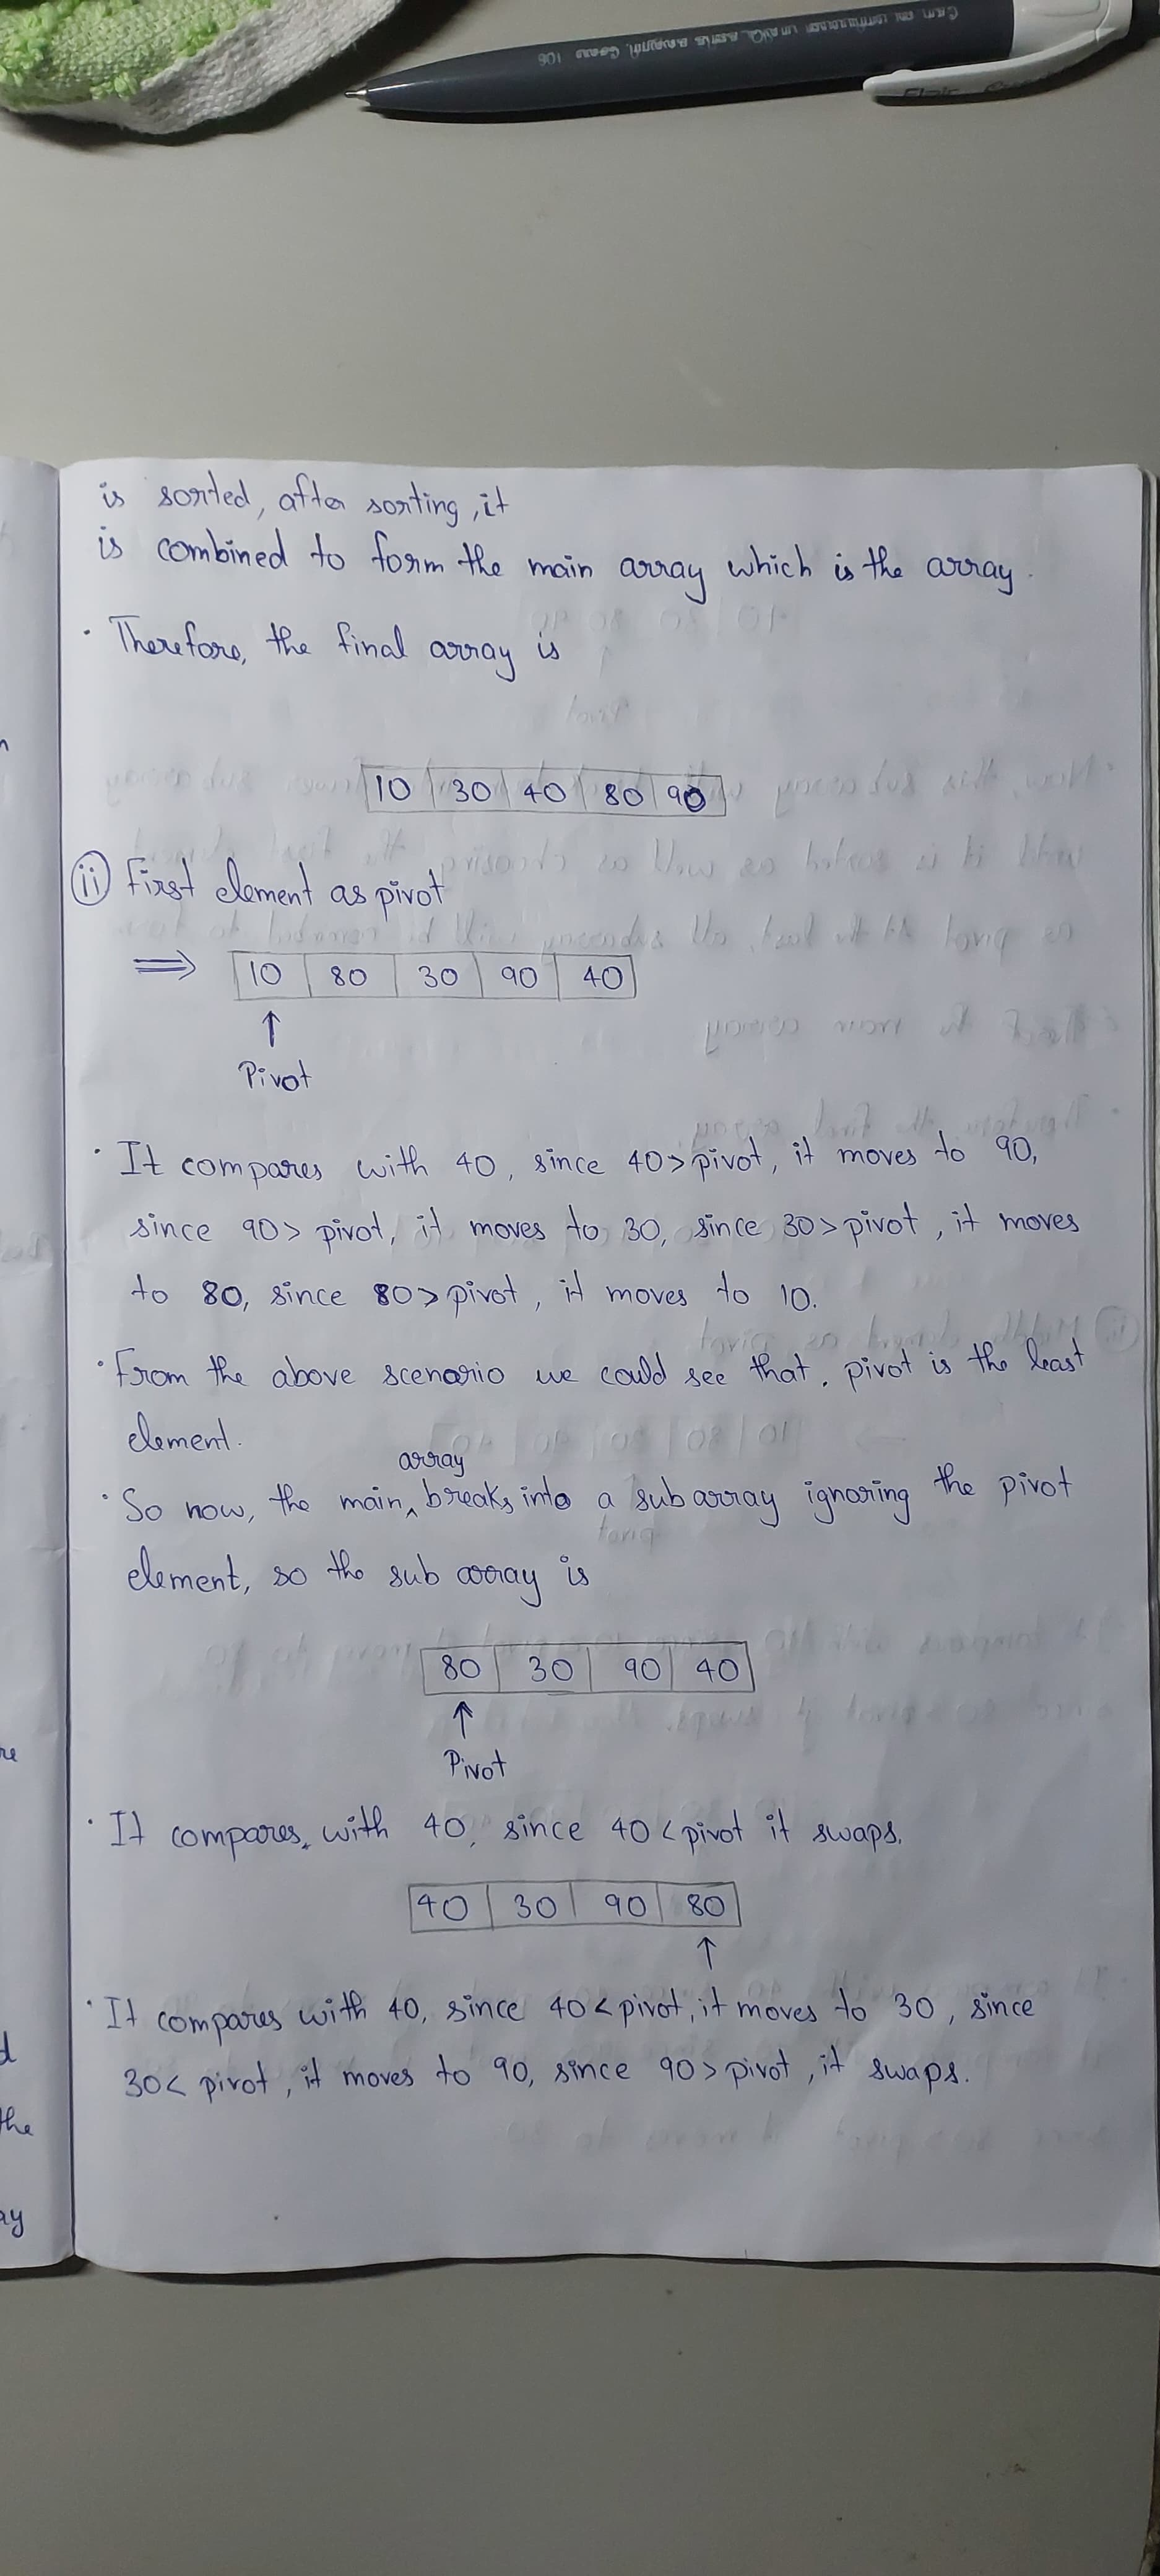 is sorted, after sorting, it
is combined to form the main array which is the array.
· Therefore, the final array is
10 30 40 80 90
(ii) First element as pivot
⇒ 10 80 30 90 40
↑
Pivot
· It compares with 40, since 40 > pivot, it moves to 90,
since 90 > pivot, it moves to 30, since 30 > pivot, it moves
to 80, since 80 > pivot, it moves to 10.
· From the above scenario we could see that, pivot is the least
element.
array
· So now, the main ^ breaks into a sub array ignoring the pivot
element, so the sub array is
80 30 90 40
↑
Pivot
· It compares, with 40, since 40 < pivot it swaps.
40 30 90 80
↑
· It compares with 40, since 40 < pivot, it moves to 30, since
30 < pivot, it moves to 90, since 90 > pivot, it swaps.